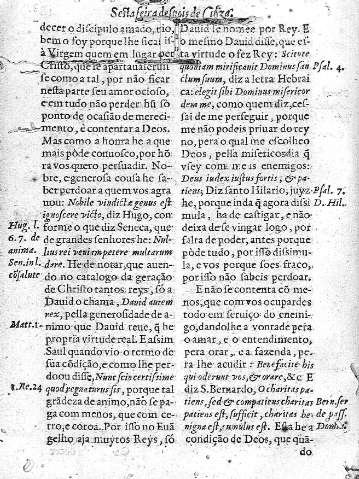 Sesta feira despois de Cinza.
decer o discipulo amado, rio,
bem o foy porque lhe ficai
á Virgem quem em lugar per
Christo, que
se como a tal, por não ficar
nesta parte seu amor ocioso,
e em tudo não perder hũ só
ponto de ocasião de mereci-
mento, e contentar a Deos.
Mas como a honra he a que
mais pòde comnosco, por hô
ra vos quero persuadir. No-
bre, e generosa cousa he sa-
ber perdoar a quem vos agra
uou: Nobile vindictæ genus est
ignoscere victo, diz Hugo, con-
forme o que diz Seneca, que
de grandes senhores he: Nul-
lius rei veniam petere multarum
dare. He de notar, que auen-
do no catalogo da geração
de Christo tantos reys, só a
Dauid o chama, Dauid autem
rex, pella generosidade de a-
nimo que Dauid teue, q̃ he
propria virtude real. E assim
Saul quando vio o termo de
sua cõdição, e como lhe per
doou disse, Nunc scio certissime
quod regnaturus sis, porque tal
grãdeza de animo, não se pa
ga com menos, que com ce-
tro, e coroa. Por isso no Euã
gelho aja muytos Reys, só
Hug. l.
6. 7. de
anima.
Sen. in l.
cõsolate
Matt. 1.
1. Re. 24
Dauid se nomee por Rey. E
o mesmo Dauid disse, que es-
ta virtude o fez Rey: Scitote
quoniam mirificauit Dominus san
ctum suum, diz a letra Hebrai
ca: elegit sibi Dominus misericor
dem me, como quem diz, ces-
sai de me perseguir, porque
me não podeis priuar do rey
no, pera o qual me escolheo
Deos, pella misericordia q̃
vsey com meus enemigos:
Deus iudex iustus fortis, & pa-
tiens; Diz santo Hilario, juyz
he, porque inda q̃ agora dissi
mula, ha de castigar, e não
deixa de se vingar logo, por
falta de poder, antes porque
pòde tudo, por isso dissimu-
la, e vos porque soes fraco,
por isso não sabeis perdoar.
E não se contenta cõ me-
nos, que com vos ocupardes
todo em seruiço do enemi-
go, dandolhe a vontade pera
o amar, e o entendimento,
pera orar, e a fazenda, pe-
ra lhe acudir: Benefacite his
qui oderunt vos, & orate, &c. E
diz S. Bernardo, O charitas pa-
tiens, sed & compatiens charitas
patiens est, sufficit, charitas be-
nigna est, cumulus est. Essa he a
condição de Deos, que quã-
do
Psal. 4.
Psal. 7.
D. Hil.
Bern. ser
de pass.
Domini